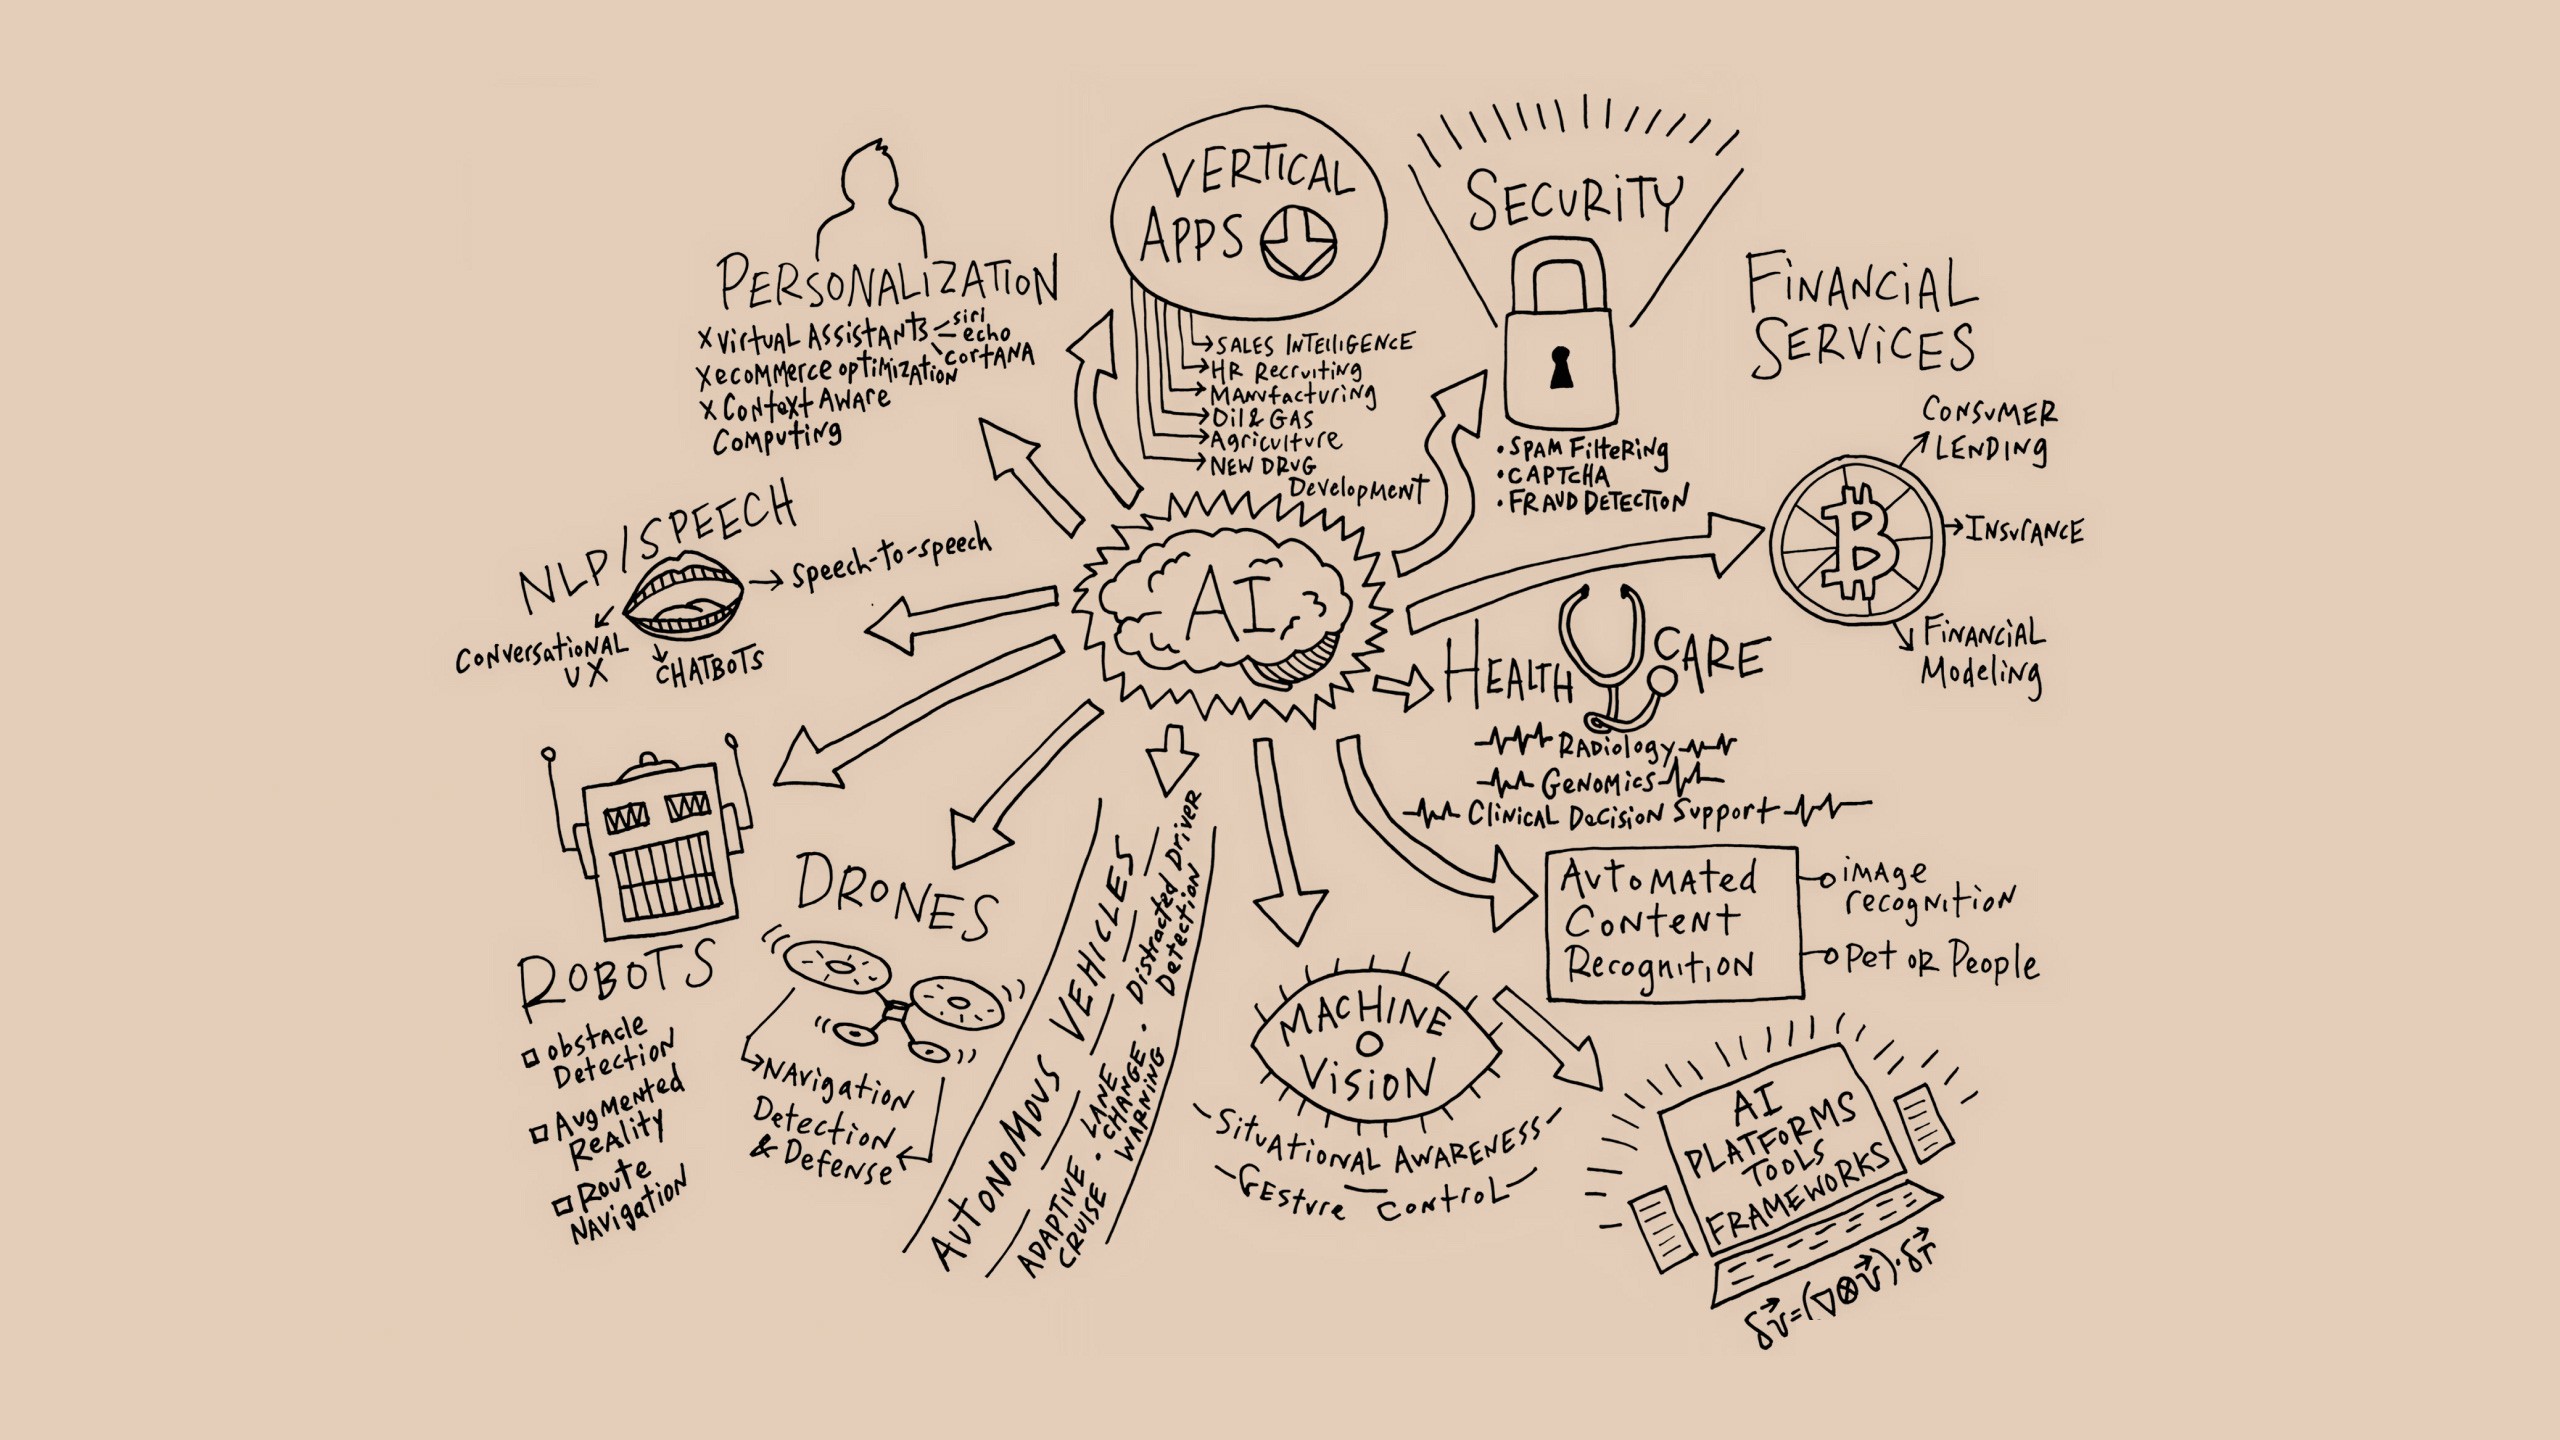 VERTICAL
APPS
SALES INTELLIGENCE
HR Recruiting
Manufacturing
Oil & GAS
Agriculture
NEW DRUG
Development
SECURITY
• SPAM FilteRing
• CAPTCHA
• FRAUD DETECTION
PERSONALIZATION
X Virtual Assistants
siri
echo
cortana
X ecommerce optimization
X Context Aware
Computing
FINANCIAL
SERVICES
CONSUMER
LENDING
INSURANCE
FINANCIAL
Modeling
NLP/SPEECH
speech-to-speech
Conversational
UX
CHATBOTS
AI
HEALTH CARE
Radiology
Genomics
Clinical Decision Support
ROBOTS
obstacle
Detection
Augmented
Reality
Route
Navigation
DRONES
Navigation
Detection
& Defense
AUTONOMOUS VEHICLES
ADAPTIVE
CRUISE
• LANE
• CHANGE •
WARNING
Distracted Driver
Detection
MACHINE
VISION
Situational Awareness
Gesture Control
Automated
Content
Recognition
image
recognition
Pet or People
AI
PLATFORMS
TOOLS
FRAMEWORKS
δv⃗=(∇⊗v⃗)·δr⃗